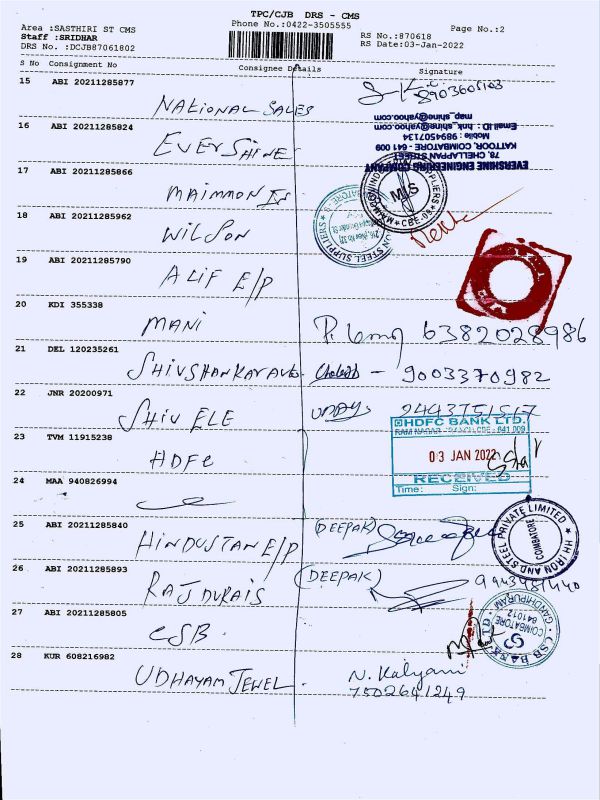 TPC/CJB DRS - CMS
Area :SASTHIRI ST CMS
Phone No.:0422-3505555
Page No.:2
Staff :SRIDHAR
RS No.:870618
DRS No. :DCJB87061802
RS Date:03-Jan-2022
S No Consignment No Consignee Details Signature
15 ABI 20211285877
NATIONAL SALES
8903605103
16 ABI 20211285824
EVERSHINE
EVERSHINE ENGINEERING COMPANY
78, CHELLAPPAN STREET
KATTOOR, COIMBATORE - 641 009
Mobile : 9894507134
Email : ID : hnk_shine@yahoo.com
map_shine@yahoo.com
17 ABI 20211285866
MAIMMON IN
M/S
CBE-09
18 ABI 20211285962
WILSON
STEEL SUPPLIERS
19 ABI 20211285790
ALIF E/P
20 KDI 355338
MANI
6382028986
21 DEL 120235261
SHIVSHANKARAVE
9003370982
22 JNR 20200971
SHIV ELE
UDAY
23 TVM 11915238
HDFC
HDFC BANK LTD.
03 JAN 2022
RECEIVED
Time: Sign:
24 MAA 940826994
25 ABI 20211285840
HINDUSTAN E/P
(DEEPAK)
HH IRON AND STEEL PRIVATE LIMITED
COIMBATORE
26 ABI 20211285893
RAJ DURAIS
(DEEPAK)
27 ABI 20211285805
CSB
CSB BANK LTD
GANDHIPURAM
COIMBATORE
641012
28 KUR 608216982
UDHAYAM JEWEL
N. Kalyani
7502641249